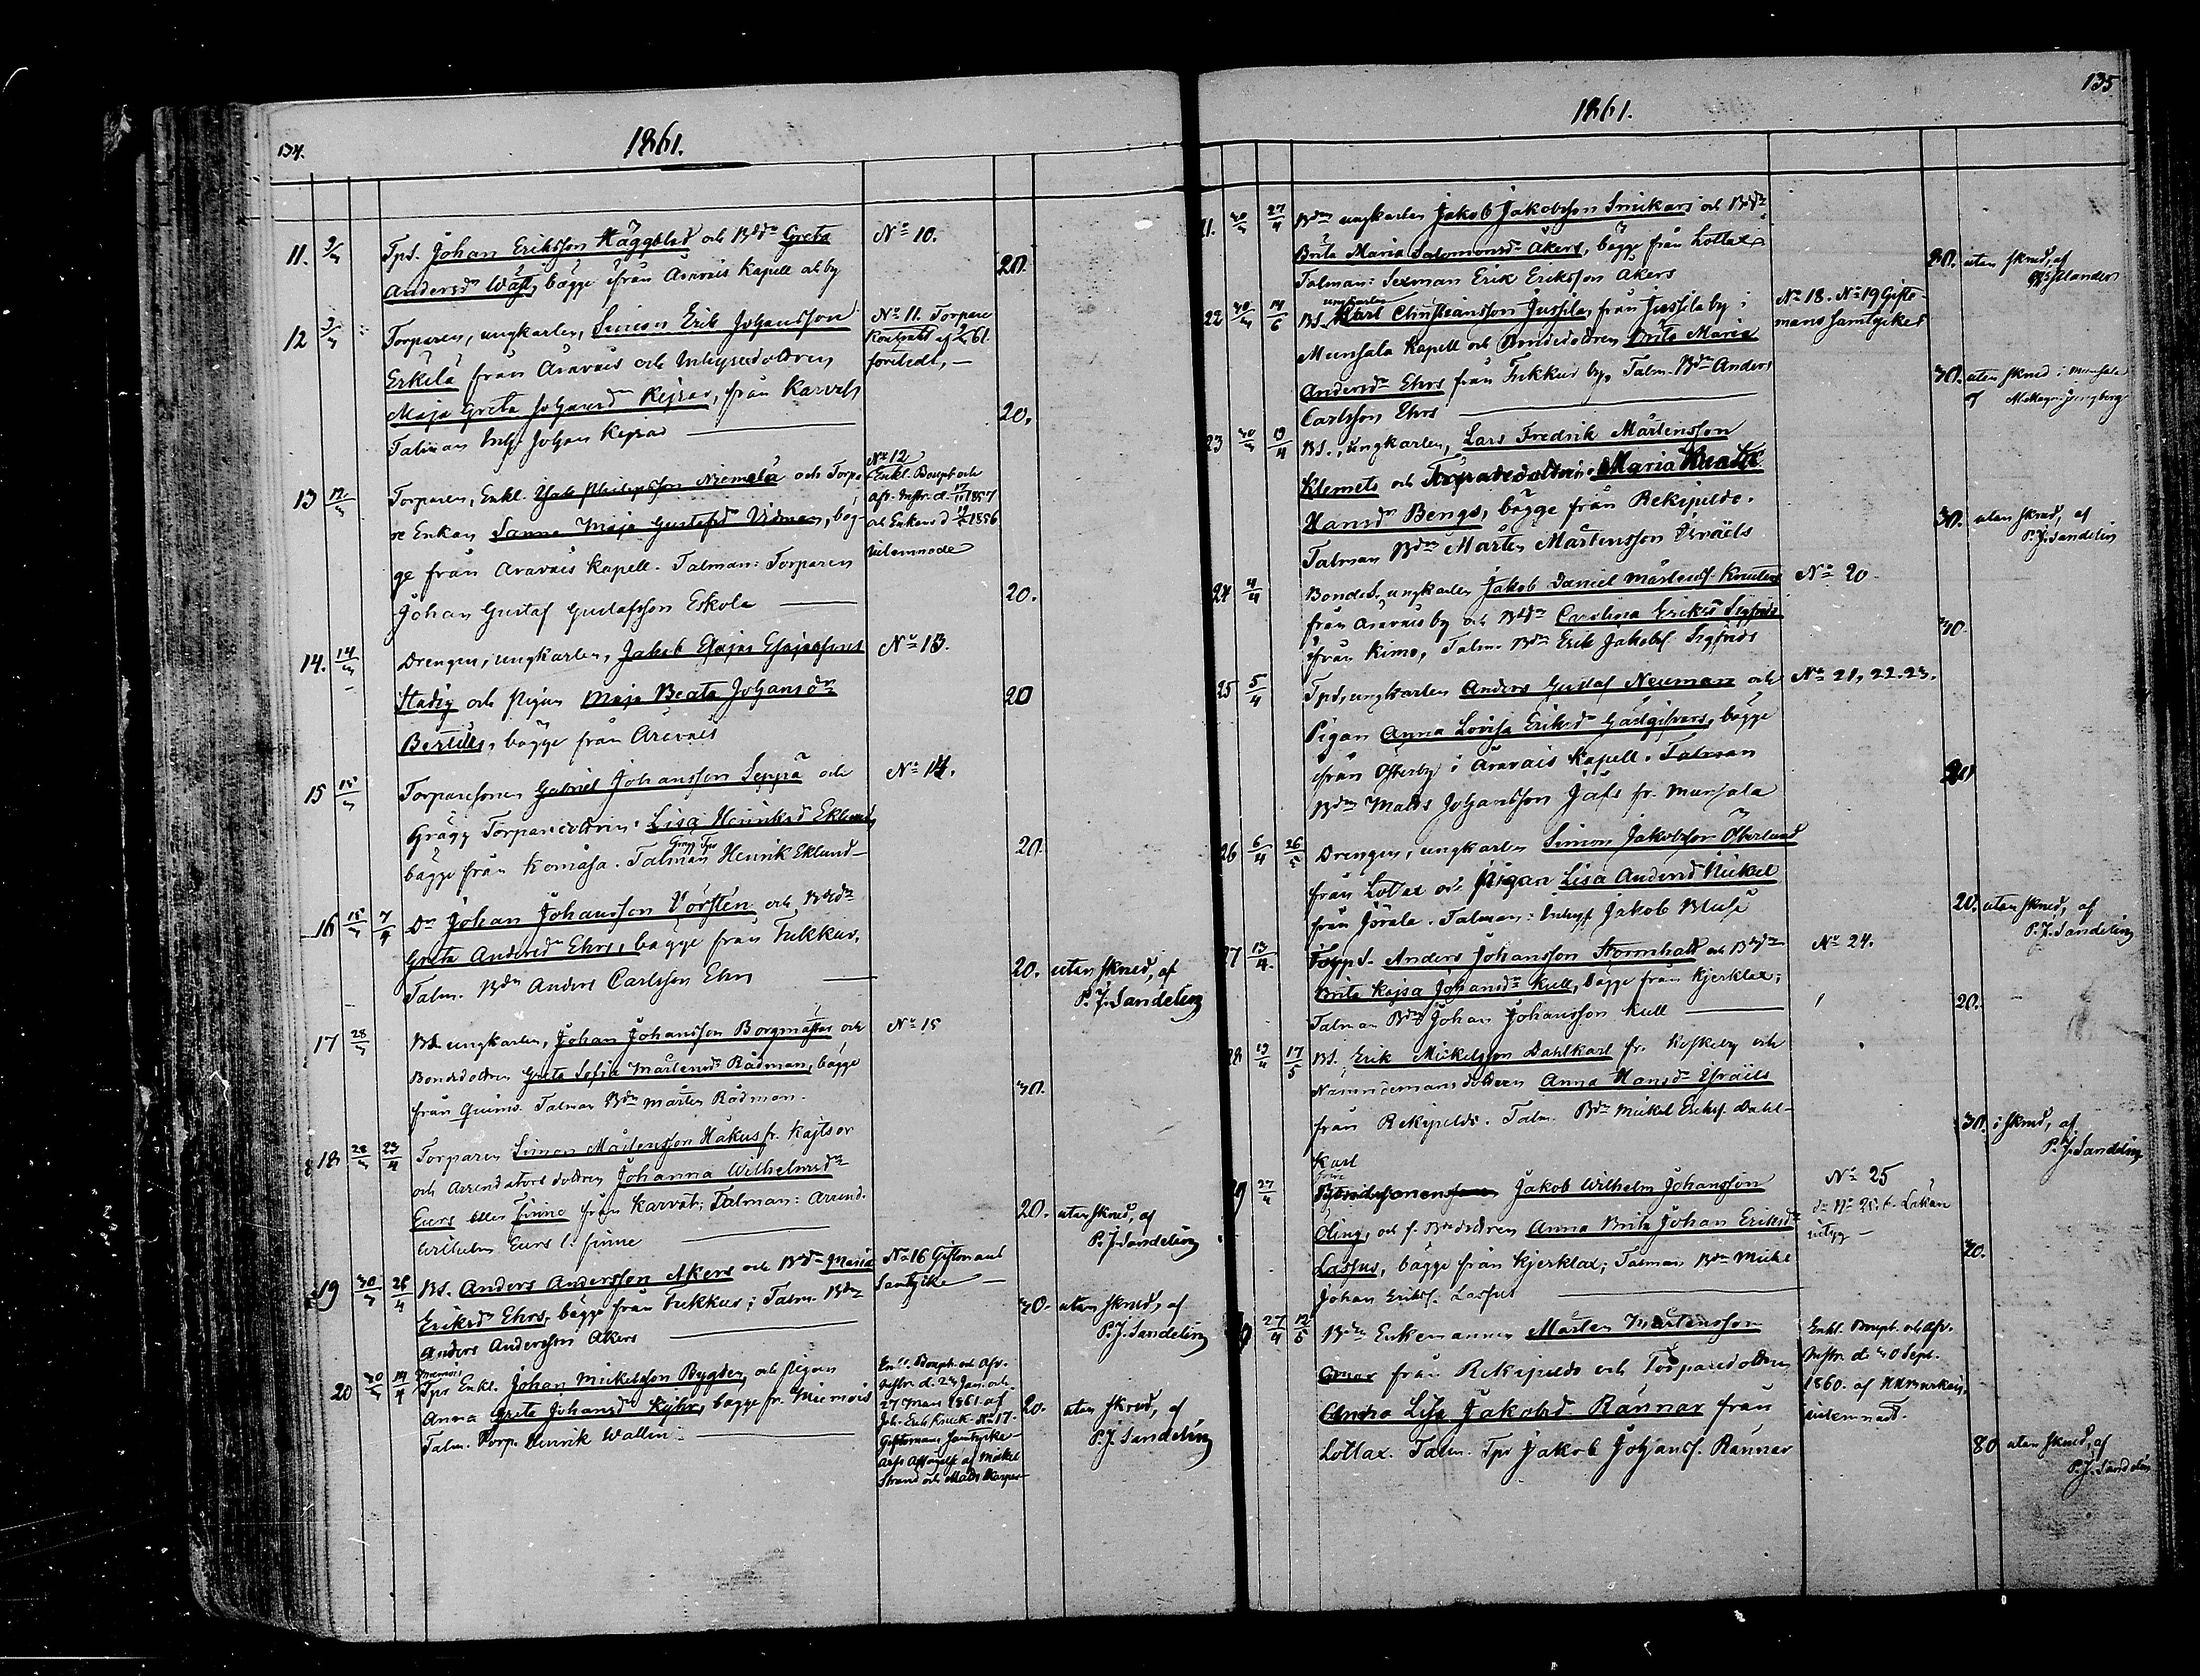 134.
1861.
11. 9/3 Tps. Johan Eriksson Häggblad och Bdr Greta
Andersdr Wäst, bägge från Oravais Kapell och by
No 10.
20.
12 9/3 Torparen, ungkarlen, Simon Erik Johansson
Erkelä från Oravais och Inhysesdottren
Maja Greta Johansdr Kejsar, från Karvats
Talman Inh. Johan Kejsar
No 11. Torpare
Kontrakt af 61.
företedt, —
20.
13 12/3 Torparen, Enkl. Philipsson Niemelä och Torpa-
re Enkan Sanna Maja Gustafsdr Widman, bäg-
ge från Oravais Kapell. Talman: Torparen
Johan Gustaf Gustafsson Eskola
No 12
Enkl. Boupt. och
afv. Instr. d. 1857
och Enkans d 1856
inlemnade
20.
14. 14/3 Drengen, ungkarlen, Jakob
Stadig och Pigan Maja Beata Johansdr
Bertills, bägge från Oravais
No 13.
20
15 15/3 Torparesonen Gabriel Johansson Seppä och
Torparedottren Lisa Henriksd Eklund,
bägge från Komåsa. Talman Henrik Eklund—
No 14.
20.
16 15/3 7/4 Dr Johan Johansson Thorsten och Bdr
Greta Andersdr Ehrs, bägge från Tukkur,
Talm. Bdn Anders Carlsson Ehrs
20. utan skrud, af
P. J. Sandelin
17 28/3 BS. ungkarlen, Johan Johansson Borgmästar och
Bondedottren Greta Sofia Mårtensdr Rådman, bägge
från Quimo. Talman Bdn Mårten Rådman.
No 15
30.
18 28/3 23/4 Torparen Simon Mårtensson Håkus fr. Kajtsor
och Arrendators dottren Johanna Wilhelmsdr
Eurs eller Finne från Karvat; Talman: Arrend.
Wilhelm Eurs l. Finne
20. utan skrud, af
P. J. Sandelin
19 30/3 26/4 BS. Anders Andersson Akers och Bdr Maria
Eriksdr Ehrs, bägge från Tukkur; Talm. Bdn
Anders Andersson Akers
No 16 Giftomans
Samtycke —
30. utan skrud, af
P. J. Sandelin
20 30/3 14/4 Tpr Enkl. Johan Mickelsson Bygden, och pigan
Anna Greta Johansdr, bägge fr. Miemois
Talm. Torp. Henrik Wallin
Enkl. Boupt. och Afv.
Instr. d. 23 Jan. och
27 Mars 1861. af
Joh. Erik Knuck. No 17.
Giftomans Samtycke
af Mickel
Strand och Matts Kasper
20. utan skrud, af
P. J. Sandelin
135
1861.
21. 30/3 27/4 Bdn ungkarlen Jakob Jakobsson Snickars och Bdr
Brita Maria Salomonsdr Åkers, bägge från Lotlax
Talman: Sexman Erik Eriksson Åkers
20. utan skrud, af
22 30/3 14/6 BS. ungkarlen Karl Christiansson Jussila, från Jussila by i
Munsala Kapell och Bondedottren Brita Maria
Andersdr Ehrs från Tukkur by, Talm. Bdn Anders
Carlsson Ehrs
No 18. No 19 Gifto-
mans Samtycket
30. utan skrud i Munsala
af
23 30/3 19/4 BS., ungkarlen, Lars Fredrik Mårtensson
Klemets och Torparedottren Maria
Hansdr Bengs, bägge från Rekipeldo.
Talman Bdn Mårten Mårtensson Israels
30. utan skrud, af
P. J. Sandelin
24 4/4 BondeS. ungkarlen Jakob Daniel Mårtens. Knuters
från Oravais by och Bdr Carolina Eriksdr Sigfrids
från Kimo, Talm. Bdn Erik Jakobs. Sigfrids
No 20
30.
25 5/4 Tps, ungkarlen Anders Gustaf Neuman och
Pigan Anna Lovisa Eriksdr Gästgifvars, bägge
från Österby i Oravais Kapell. Talman
Bdn Matts Johansson Jåfs fr. Munsala
No 21, 22. 23.
20
26 6/4 26/5 Drengen, ungkarlen Simon Jakobsson Öberlund
från Lotlax och Pigan Lisa Andersd Nickel
från Jörala. Talman: Inhys. Jakob Bluse
20. utan skrud, af
P. J. Sandelin
27 13/4. TorpS. Anders Johansson Stormhatt och Bdr
Brita Kajsa Johansdr Kull, bägge från Kjerklax;
Talman Bdn Johan Johansson Kull
No 24.
20.
28 19/4 17/5 BS. Erik Mickelsson Dahlkarl fr. Koskeby och
Nämndemansdottren Anna Hansdr Israels
från Rekipeldo. Talm. Bdn Mickel Eriks. Dahl-
karl
30. i skrud, af
P. J. Sandelin
29 27/4 Bondesonen Jakob Wilhelm Johansson
Öling, och f. Bondedottren Anna Brita Johan Eriksdr
Lassus, bägge från Kjerklax; Talman Bdn Mickel
Johan Eriks. Lassus
No 25
betyg —
30.
30 27/4 12/5 Bdn Enkemannen Mårten Mårtensson
från Rekipeldo och Torparedottren
Anna Lisa Jakobsd. Rännar från
Lotlax. Talm. Tpr Jakob Johans. Rännar
Enkl. Boupt. och Afv.
Instr. d. 30 Sept.
1860. af
inlemnadt.
80 utan skrud, af
P. J. Sandelin